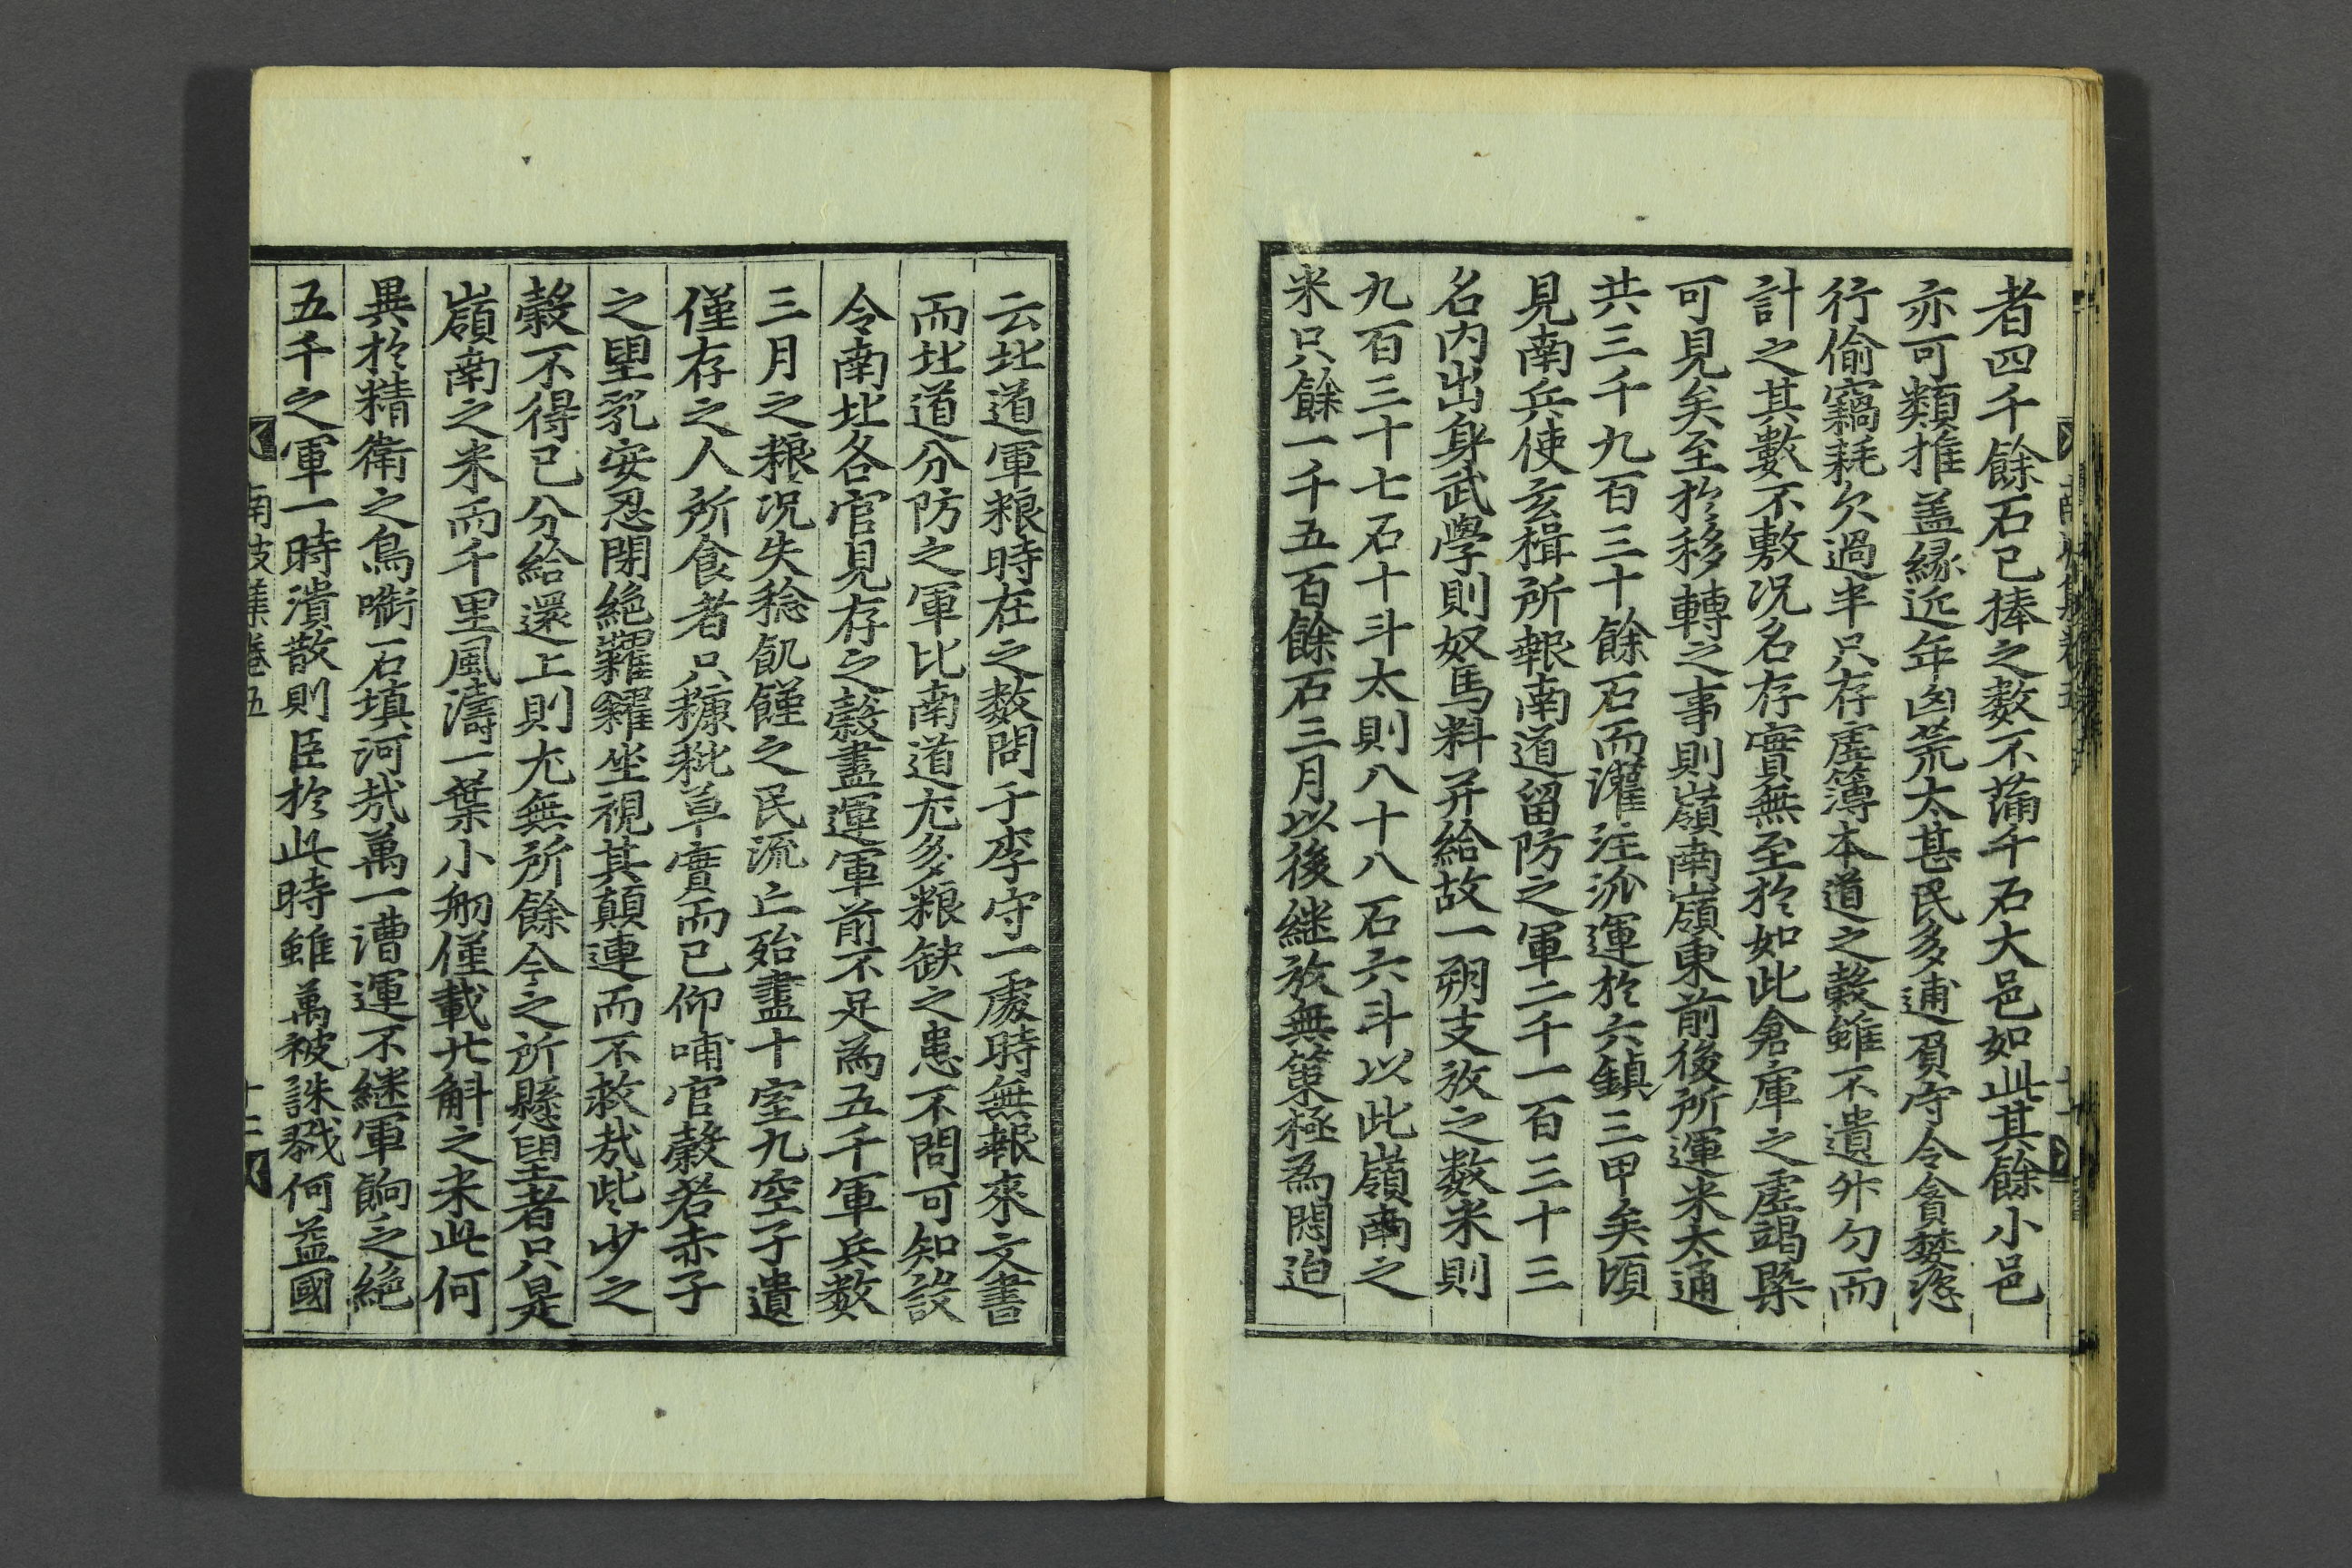 者四千餘石已捧之数不蒲千石大邑如此其餘小邑
亦可類推盖縁近年凶荒太甚民多逋負守令貪婪恣
行偷竊耗欠過半只存虛簿本道之穀雖不遺升勺而
計之其數不敷况名存實無至於如此倉庫之虛竭槩
可見矣至於移轉之事則嶺南嶺東前後所運米太通
共三千九百三十餘石而灌注泝運於六鎮三甲矣頃
見南兵使玄楫所報南道留防之軍二千一百三十三
名内出身武學則奴馬料并給故一朔支放之数米則
九百三十七石十斗太則八十八石六斗以此嶺南之
米只餘一千五百餘石三月以後継放無策極為悶迫
云北道軍粮時在之数問于李守一處時無報來文書
而北道分防之軍比南道尤多粮缺之患不問可知設
令南北各官見存之穀盡運軍前不足為五千軍兵数
三月之粮况失稔飢饉之民流亡殆盡十室九空孑遺
僅存之人所食者只糠粃草實而已仰哺官穀若赤子
之望乳安忍閉絶糶糴坐視其顛連而不救哉些少之
穀不得已分給還上則尤無所餘今之所懸望者只是
嶺南之米而千里風濤一葉小舠僅載廿斛之米此何
異於精衛之鳥啣石填河哉萬一漕運不継軍餉乏絶
五千之軍一時潰散則臣於此時雖萬被誅戮何益國
南坡集卷五
十二